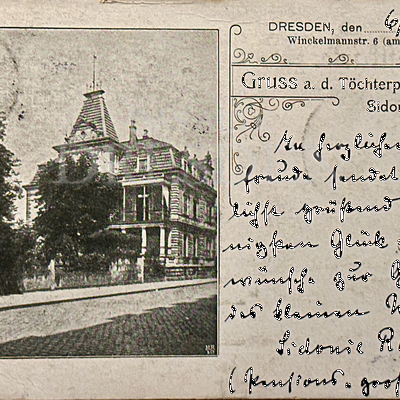 DRESDEN, den 6
Winckelmannstr. 6 (am
Gruss a. d. Töchterp
Sidon
In herzlicher
Freude sendet
lichst grüßend
nigsten Glück
wünsche zur G
des kleinen
Sidonie R
(Pensions-groß